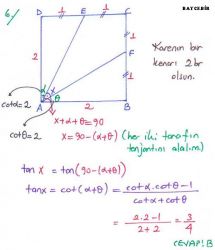 BAYÇEBİR
6/
D 1 E 1 C
1
2
F
Karenin bir
kenarı 2 br
olsun.
1
α x θ
cotα=2
A 2 B
cotθ=2
x+α+θ=90
x=90-(α+θ) (her iki tarafın
tanjantını alalım)
tan x = tan(90-(α+θ))
tanx = cot(α+θ) = cotα.cotθ-1 / cotα+cotθ
= 2.2-1 / 2+2 = 3/4
CEVAP:B